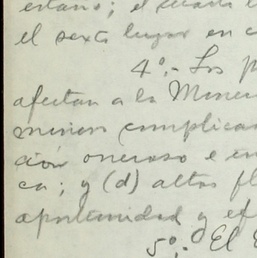 estaño; el
el sexto lugar en c
4º.- Los p
afectan a la Miner
mision complica
ción oneroso e en
ca; y (d) altos fl
oportunidad y ef
5º.- El E